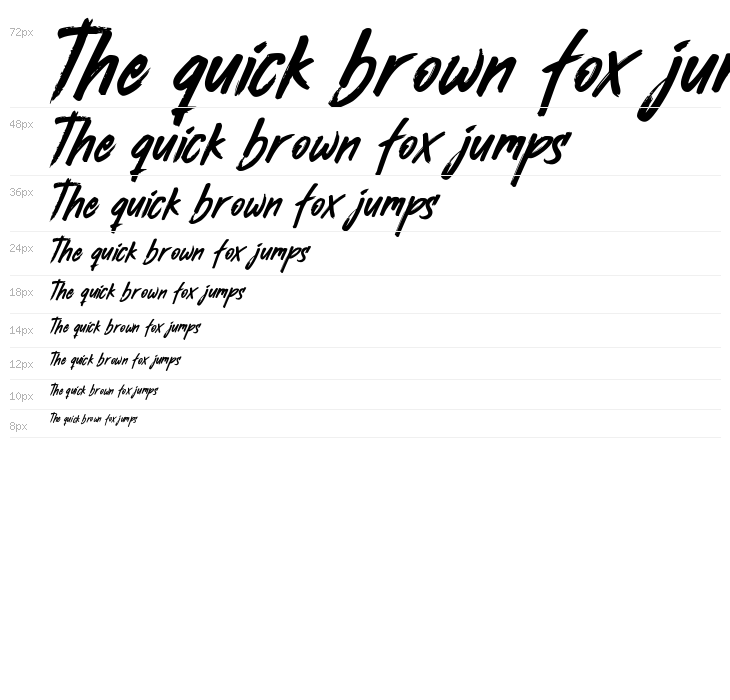 72px The quick brown fox jun
48px The quick brown fox jumps
36px The quick brown fox jumps
24px The quick brown fox jumps
18px The quick brown fox jumps
14px The quick brown fox jumps
12px The quick brown fox jumps
10px The quick brown fox jumps
8px The quick brown fox jumps